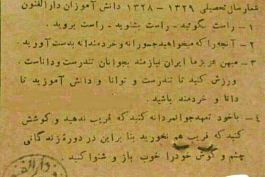 شعار سال تحصیلی ۱۳۲۹ - ۱۳۲۸ دانش آموزان دارالفنون
۱ - راست بگوئید - راست بشنوید - راست بروید .
۲ - آنچه را که میخواهید جسورانه و خردمندانه بدست آورید .
۳ - میهن عزیز ما ایران نیازمند بجوانان تندرست و داناست ،
ورزش کنید تا تندرست و توانا و دانش آموزید تا
دانا و خردمند باشید .
۴ - با خود تعهد جوانمردانه کنید که فریب ندهید و کوشش
کنید که فریب هم نخورید بنا براین در دورهٔ زندگانی
چشم و گوش خود را خوب باز و شنوا کنید .